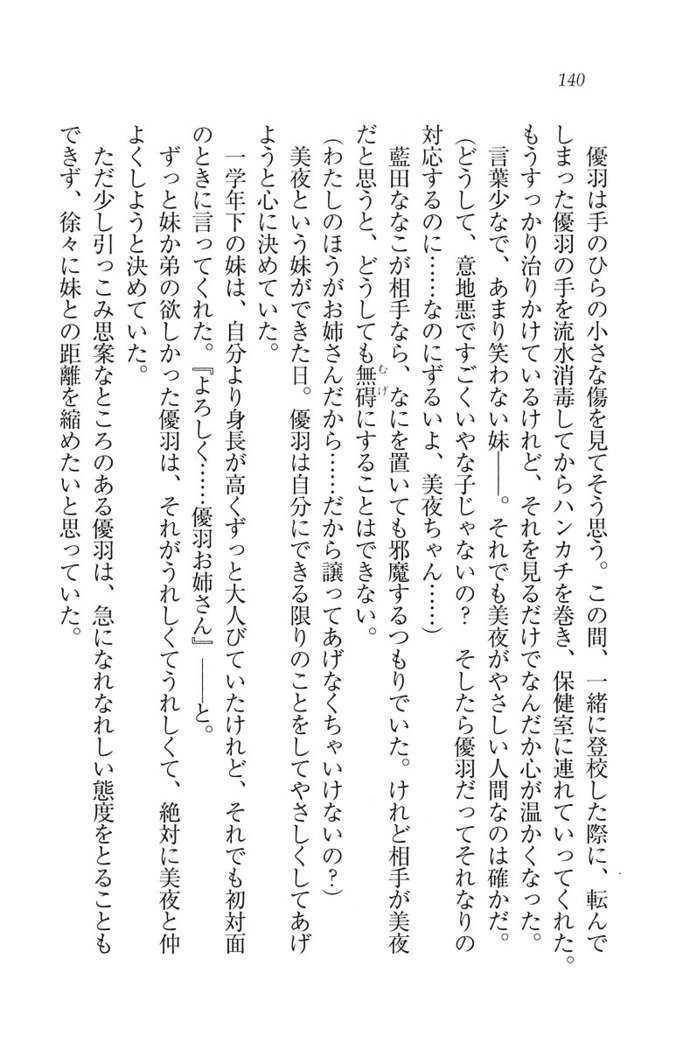 140
優羽は手のひらの小さな傷を見てそう思う。この間、一緒に登校した際に、転んで
しまった優羽の手を流水消毒してからハンカチを巻き、保健室に連れていってくれた。
もうすっかり治りかけているけれど、それを見るだけでなんだか心が温かくなった。
言葉少なで、あまり笑わない妹――。それでも美夜がやさしい人間なのは確かだ。
(どうして、意地悪ですごくいやな子じゃないの？　そしたら優羽だってそれなりの
対応するのに……なのにずるいよ、美夜ちゃん……)
藍田ななこが相手なら、なにを置いても邪魔するつもりでいた。けれど相手が美夜
だと思うと、どうしても無碍にすることはできない。
むげ
(わたしのほうがお姉さんだから……だから譲ってあげなくちゃいけないの？)
美夜という妹ができた日。優羽は自分にできる限りのことをしてやさしくしてあげ
ようと心に決めていた。
一学年下の妹は、自分より身長が高くずっと大人びていたけれど、それでも初対面
のときに言ってくれた。『よろしく……優羽お姉さん』――と。
ずっと妹か弟の欲しかった優羽は、それがうれしくてうれしくて、絶対に美夜と仲
よくしようと決めていた。
ただ少し引っこみ思案なところのある優羽は、急になれなれしい態度をとることも
できず、徐々に妹との距離を縮めたいと思っていた。